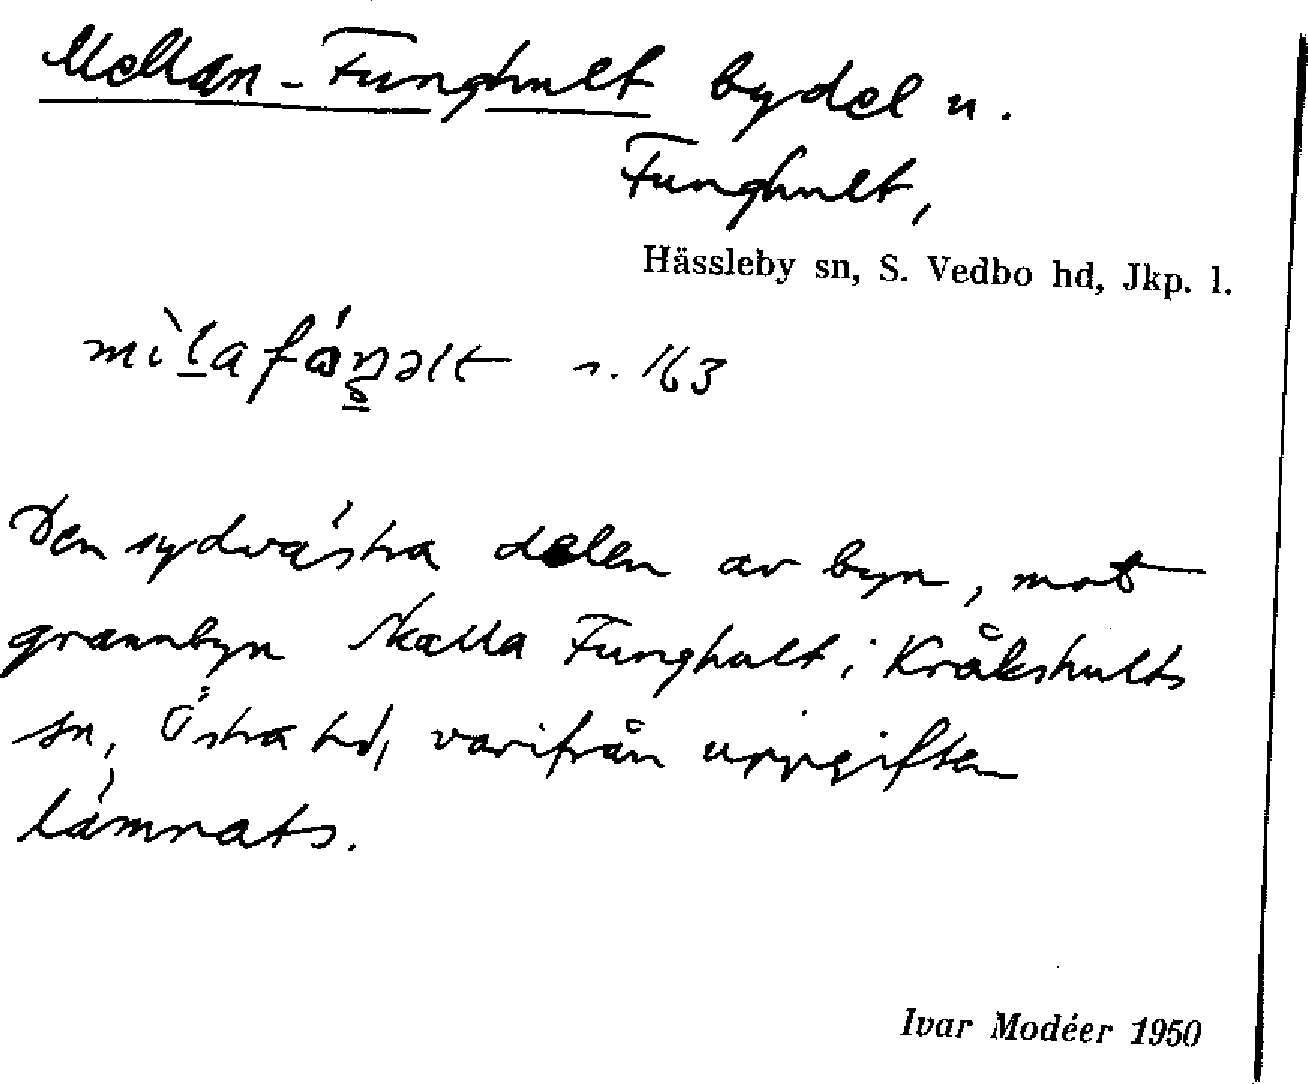 Mellan-Funghult bydel u.
Funghult,
Hässleby sn, S. Vedbo hd, Jkp. l.
s. 163
Den sydvästra delen av byn, mot
grannbyn Skälla Funghult i Kråkshults
sn, Östra hd, varifrån uppgiften
lämnats.
Ivar Modéer 1950